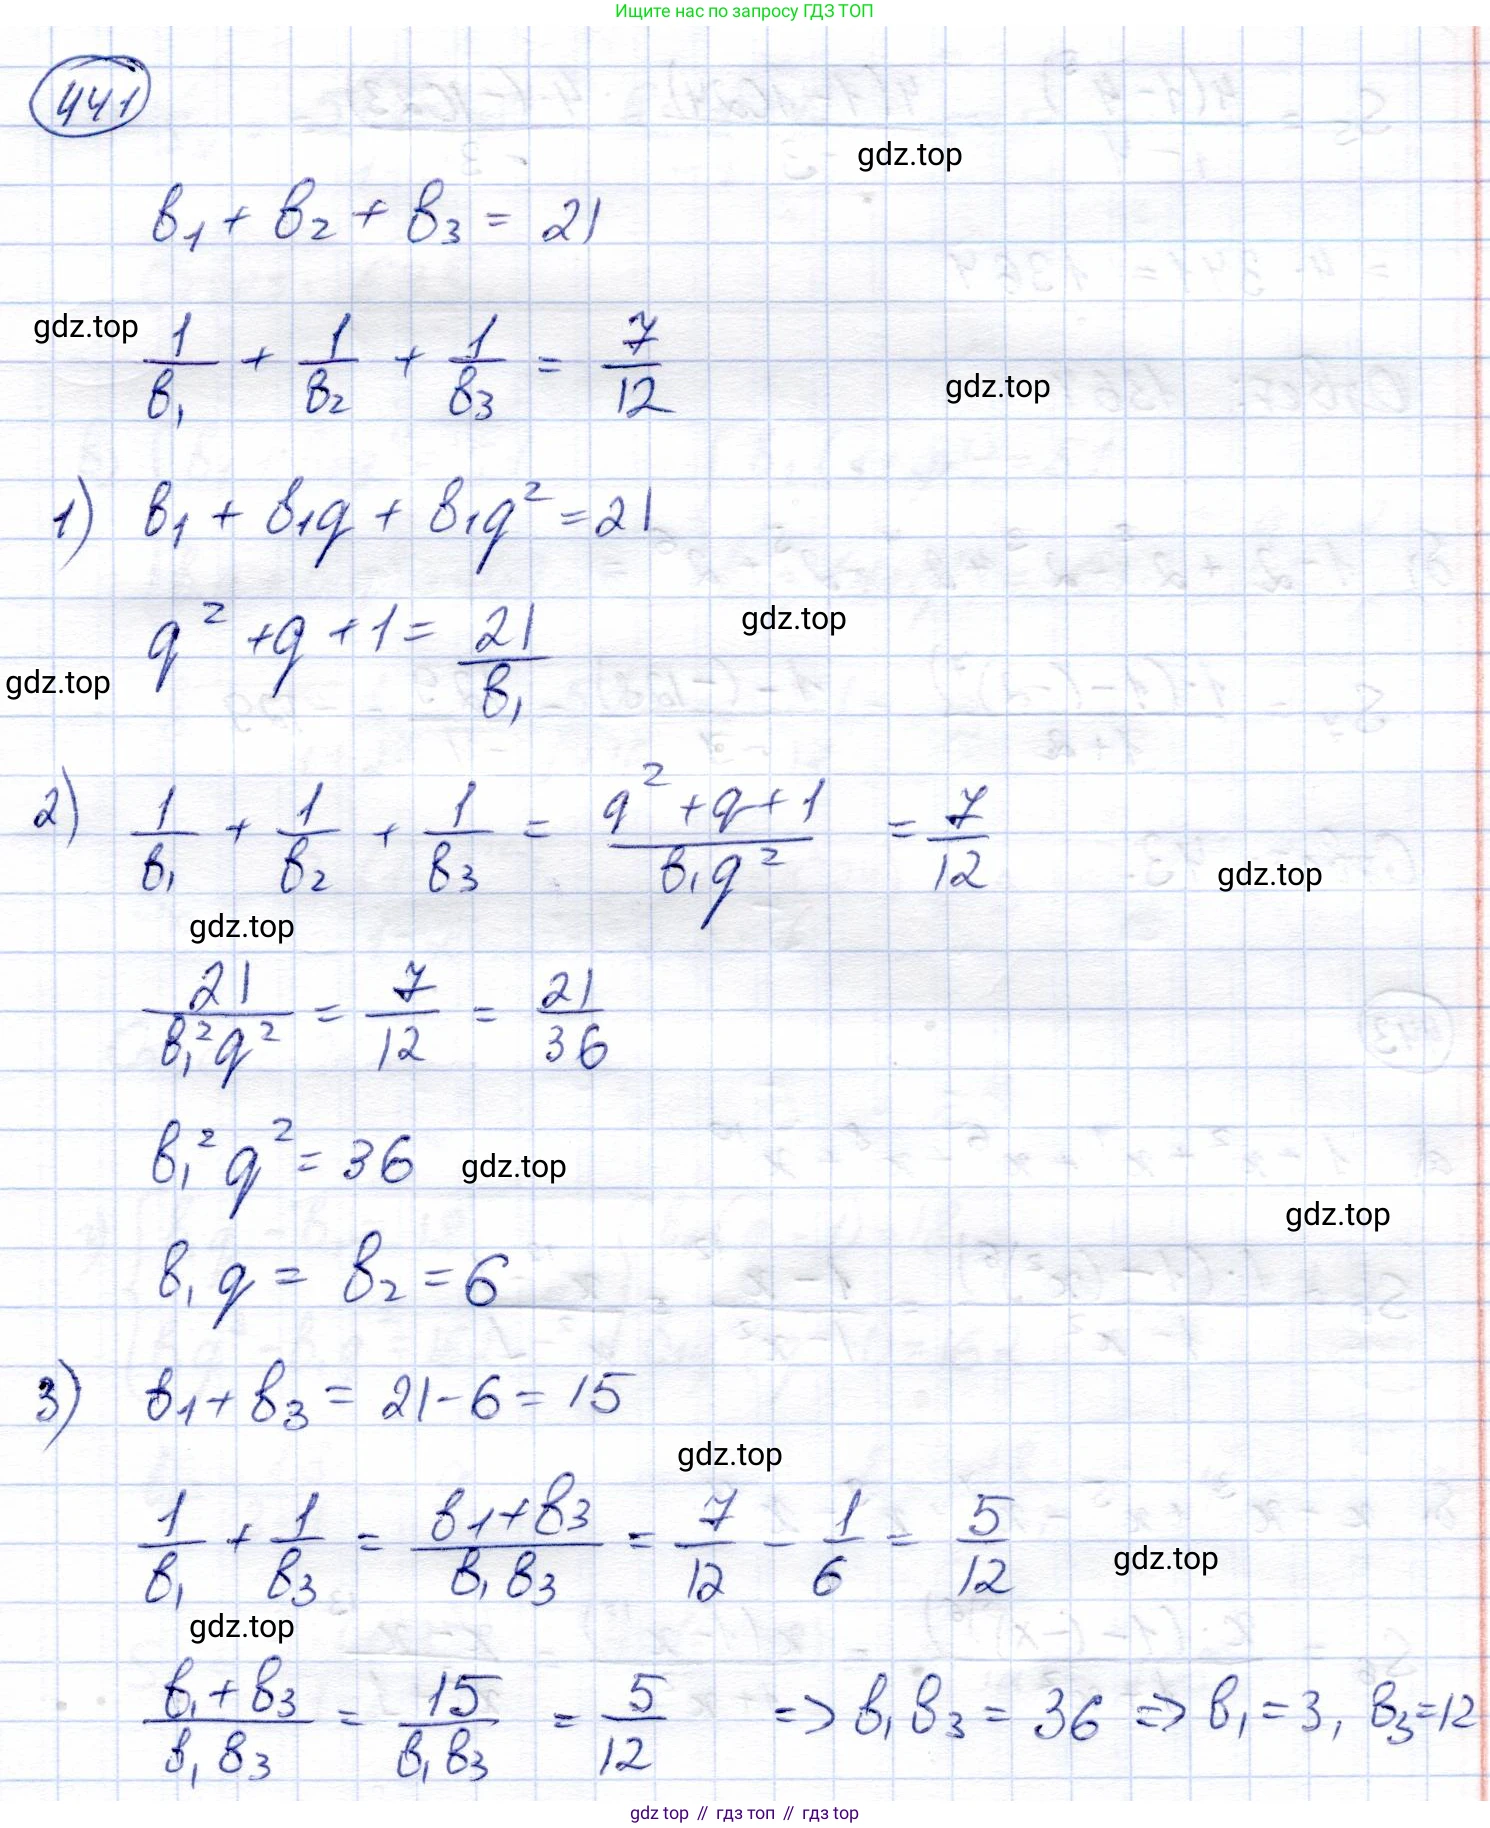 Ищите нас по запросу ГДЗ ТОП
441
gdz.top
в₁ + в₂ + в₃ = 21
gdz.top
1/в₁ + 1/в₂ + 1/в₃ = 7/12
gdz.top
1) в₁ + в₁q + в₁q² = 21
q² + q + 1 = 21/в₁
gdz.top
gdz.top
2) 1/в₁ + 1/в₂ + 1/в₃ = (q² + q + 1)/(в₁q²) = 7/12
gdz.top
gdz.top
21/(в₁²q²) = 7/12 = 21/36
в₁²q² = 36
gdz.top
gdz.top
в₁q = в₂ = 6
3) в₁ + в₃ = 21 - 6 = 15
gdz.top
1/в₁ + 1/в₃ = (в₁ + в₃)/(в₁в₃) = 7/12 - 1/6 = 5/12
gdz.top
gdz.top
(в₁ + в₃)/(в₁в₃) = 15/(в₁в₃) = 5/12 => в₁в₃ = 36 => в₁ = 3, в₃ = 12
gdz top // гдз топ // gdz top